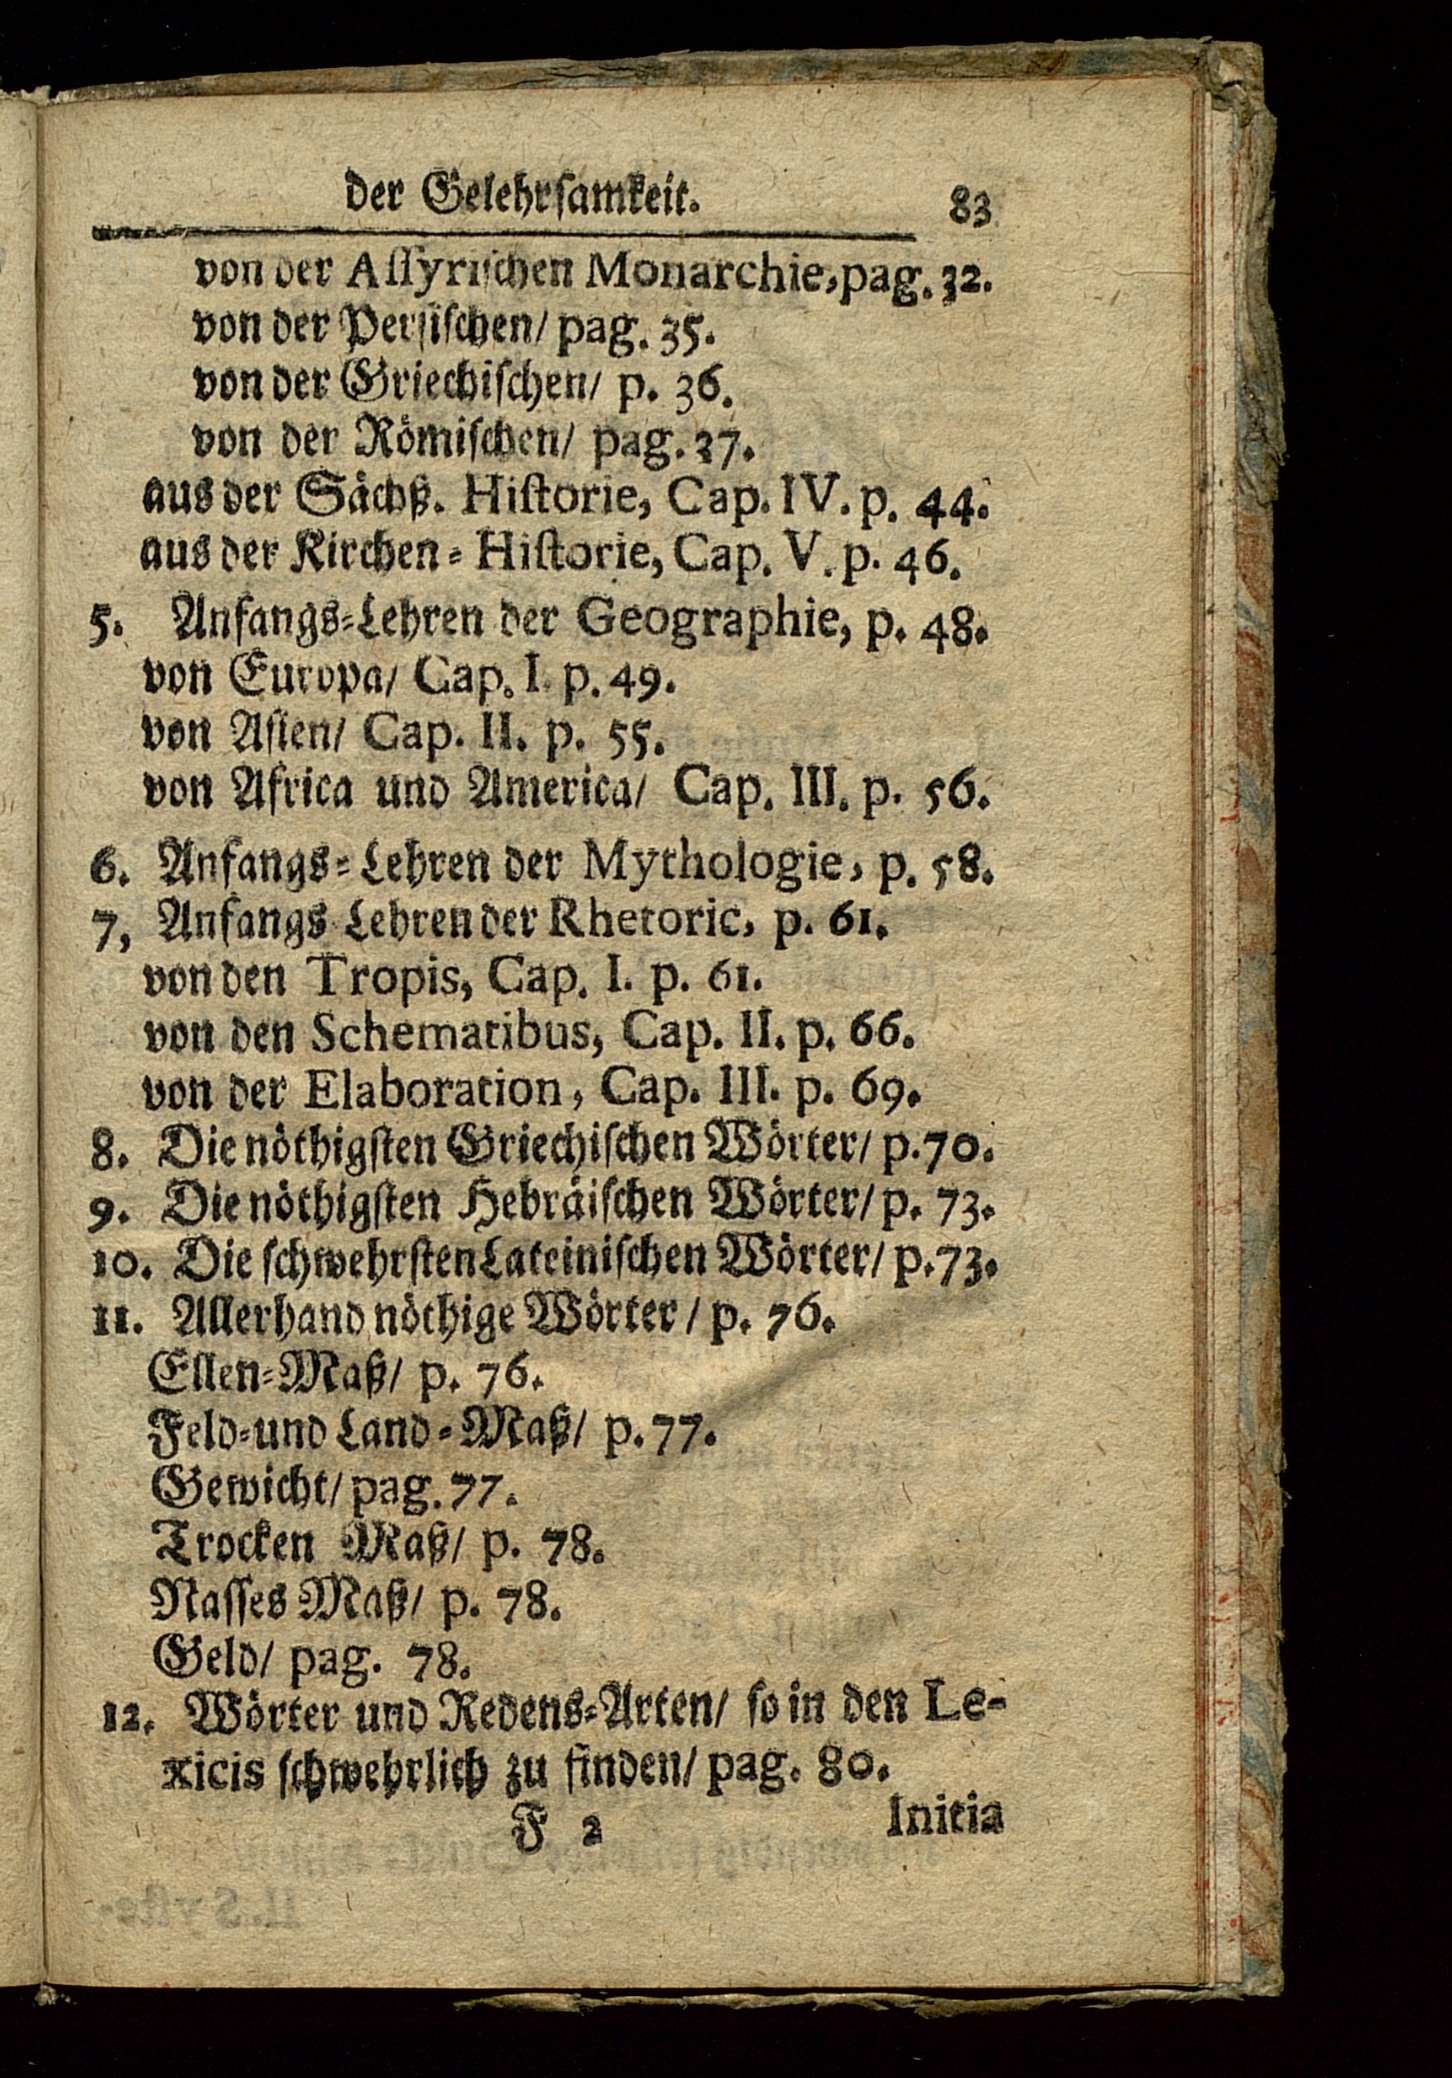 der Gelehrſamkeit. 83
von der Aſſyriſchen Monarchie, pag. 32.
von der Perſiſchen/ pag. 35.
von der Griechiſchen/ p. 36.
von der Römiſchen/ pag. 37.
aus der Sächß. Hiſtorie, Cap. IV. p. 44.
aus der Kirchen-Hiſtorie, Cap. V. p. 46.
5. Anfangs-Lehren der Geographie, p. 48.
von Europa/ Cap. I. p. 49.
von Aſien/ Cap. II. p. 55.
von Africa und America/ Cap. III. p. 56.
6. Anfangs-Lehren der Mythologie, p. 58.
7, Anfangs Lehren der Rhetoric, p. 61.
von den Tropis, Cap. I. p. 61.
von den Schematibus, Cap. II. p. 66.
von der Elaboration, Cap. III. p. 69.
8. Die nöthigſten Griechiſchen Wörter/ p. 70.
9. Die nöthigſten Hebräiſchen Wörter/ p. 73.
10. Die ſchwehrſten Lateiniſchen Wörter/ p. 73.
11. Allerhand nöthige Wörter / p. 76.
Ellen-Maß/ p. 76.
Feld-und Land-Maß/ p. 77.
Gewicht/ pag. 77.
Trocken Maß/ p. 78.
Naſſes Maß/ p. 78.
Geld/ pag. 78.
12. Wörter und Redens-Arten/ ſo in den Le-
xicis ſchwehrlich zu finden/ pag. 80.
F 2 Initia